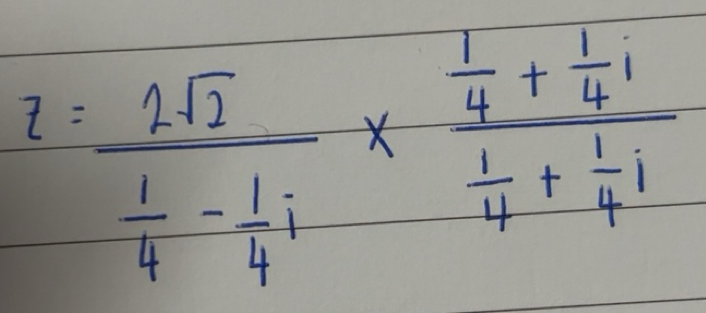 z = 2√2 / (1/4 - 1/4 i) × (1/4 + 1/4 i) / (1/4 + 1/4 i)